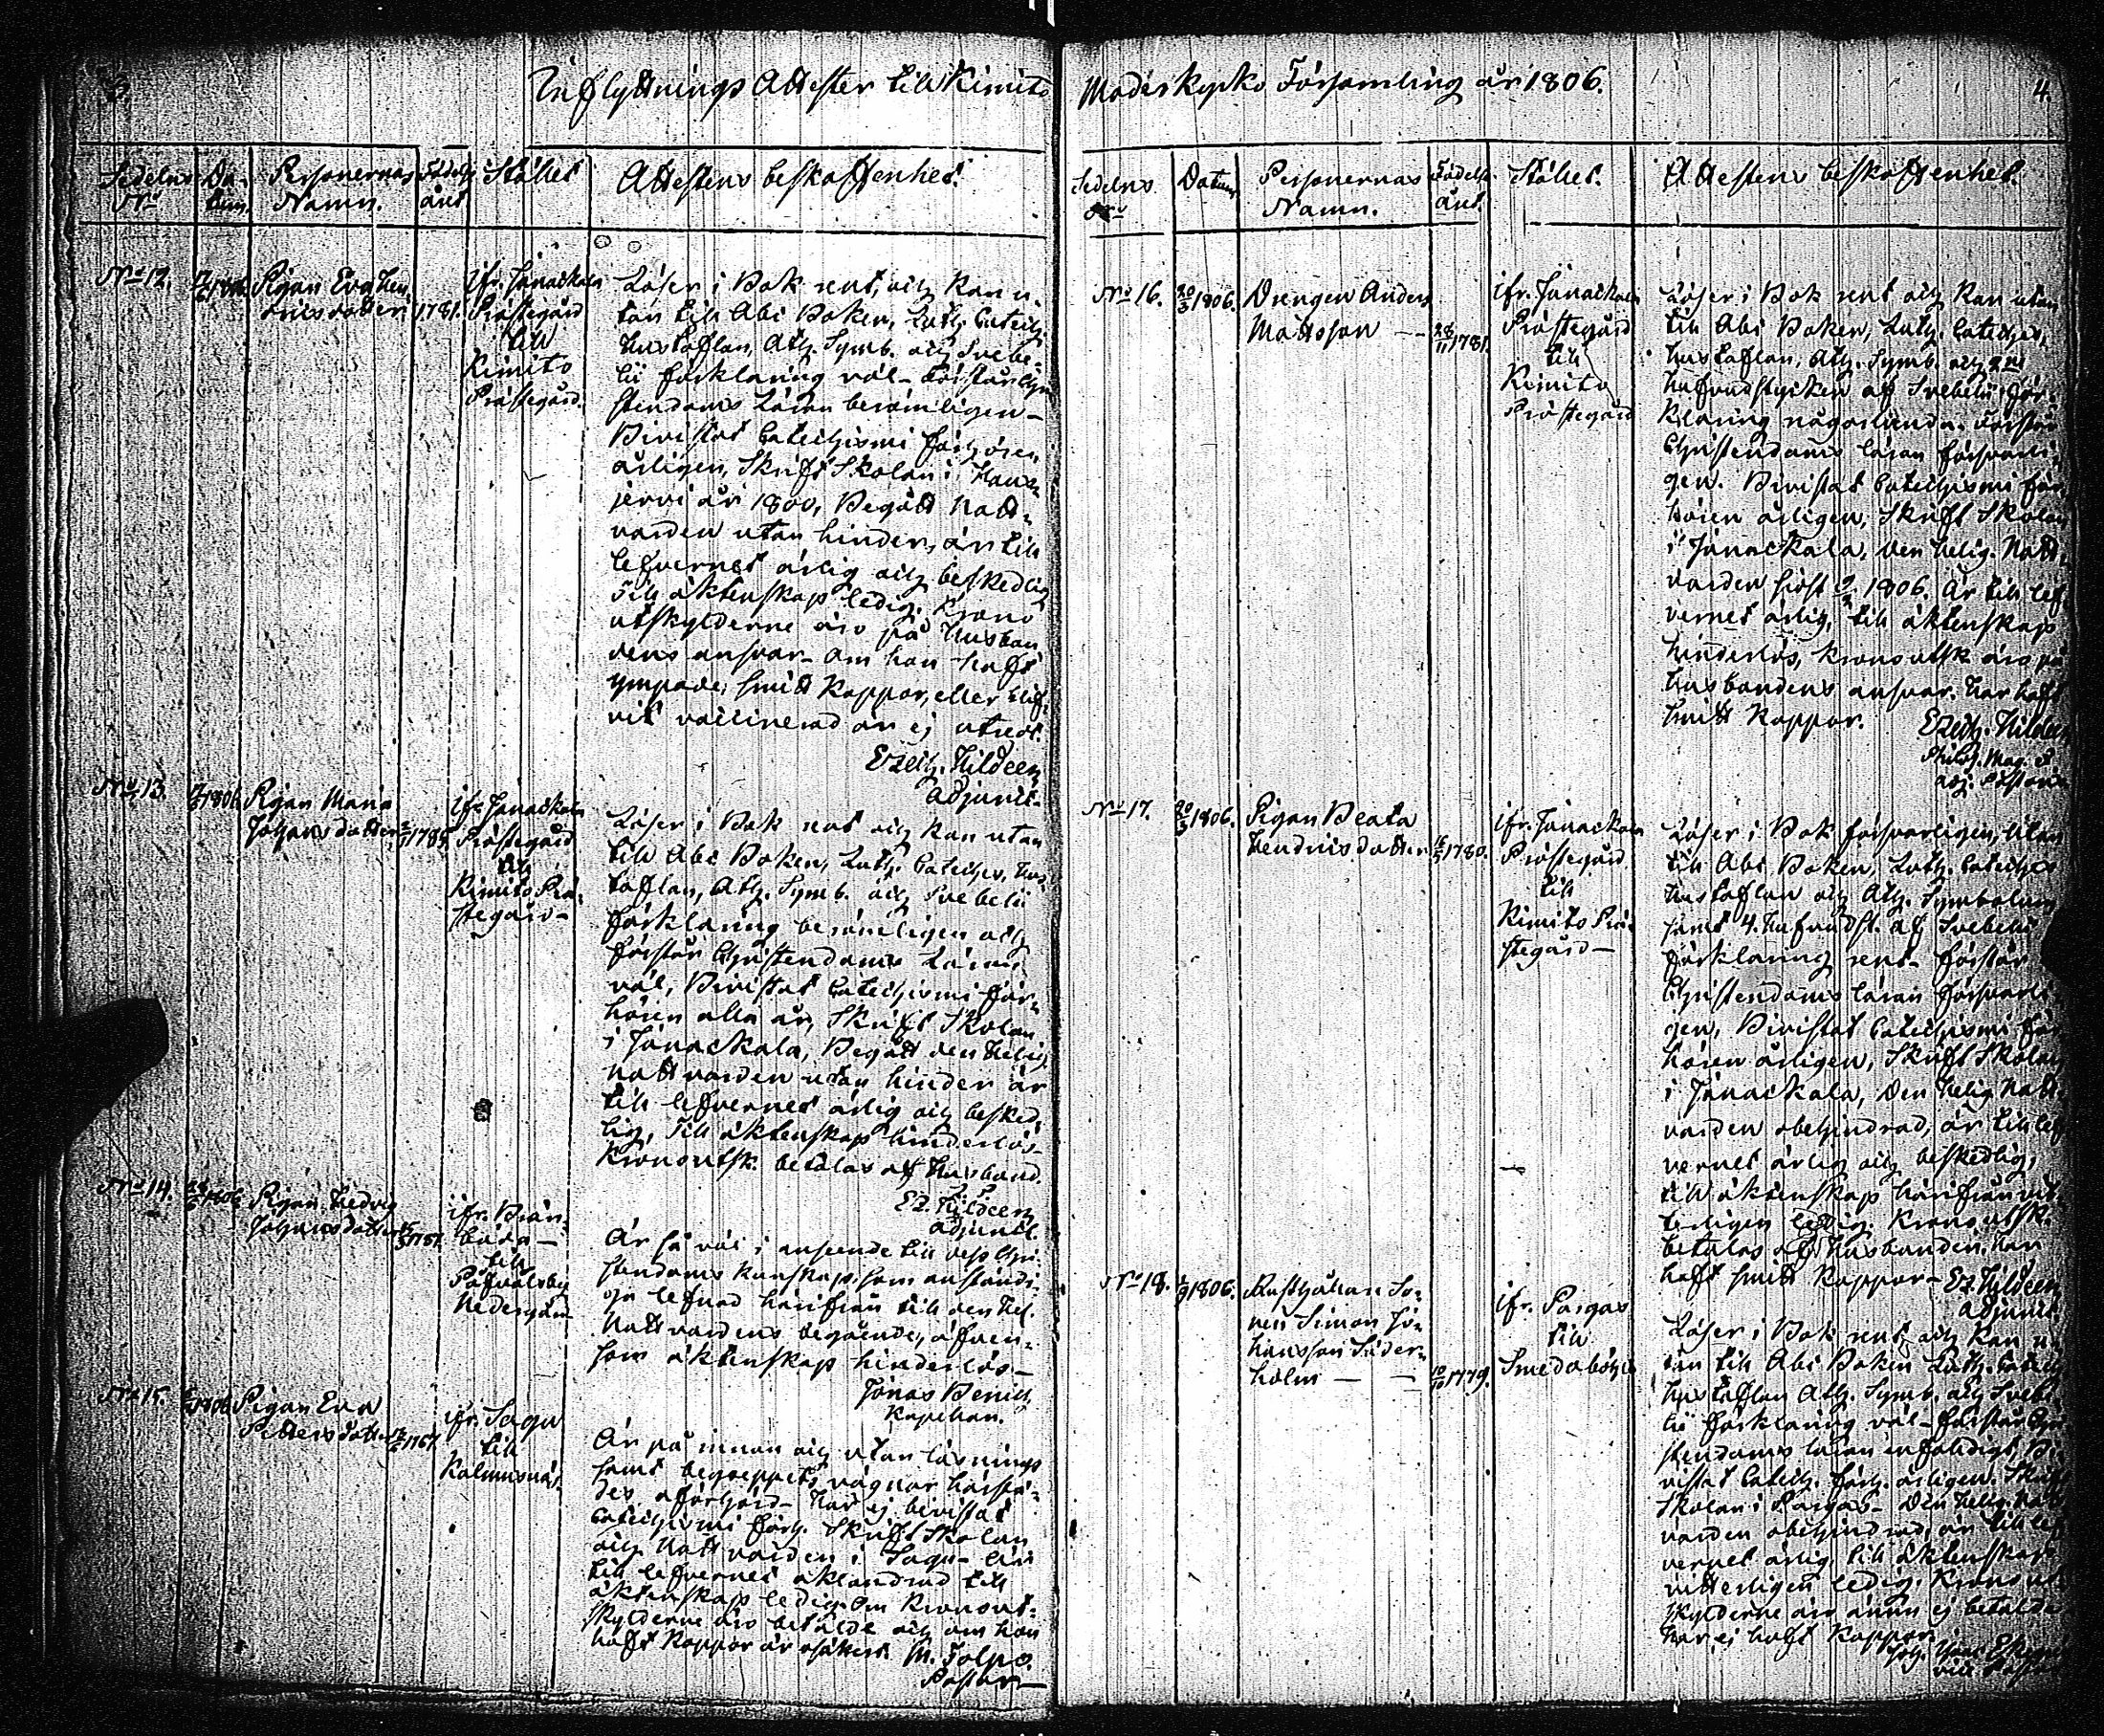 3.
Inflyttnings Attester till Kimito
Sedelns No
Datum.
Personernas Namn.
Födelse året
Stället
Attestens beskaffenhet.
No 12.
Pigan Eva Hen-
ricsdotter 1781.
ifr. Janackala
Prästegård
till
Kimito
Prästegård.
Läser i Bok rent, och kan u-
tan till Abc Boken, Luth. Catech.
Hustaflan, Ath. Symb. och Svebe-
lii förklaring väl - förstår Chri
stendoms Läran berömligen -
Bivistat Catechismi förhören
årligen, Skrift Skolan i Haus-
jervi år 1800, Begått Natt-
varden utan hinder, är till
lefvernet ärlig och beskedlig
Till äktenskap ledig. Krono
utskylderne äro på Husbon
dens ansvar - om hon haft
ympade, smitt Koppor, eller blif-
vit vaccinerad är ej utredt.
Ezech. Hildeen
Adjunct.
No 13.
1806.
Pigan Maria
Johansdotter 1785.
ifr. Janackala
Prästegård
till
Kimito Prä-
stegård -
Läser i Bok rent och kan utan
till Abc Boken, Luth. Catechs, Hus-
taflan, Ath. Symb. och Svebelii
förklaring berömligen och
förstår Christendoms Läran
väl, Bivistat Catechismi för-
hören alla år, Skrift Skolan
i Janackala, Begått den Helig.
Nattvarden utan hinder är
till lefvernet ärlig och besked-
lig, Till äktenskap hinderlös -
Kronoutsk. betalas af Husbond.
Ez. Hildeen
Adjunct.
No 14.
1806
Pigan Hedvig
Johansdotter
ifr. Brän-
boda -
till
Påfvalsby
Nedergård
Är så väl i anseende till dess Chri
stendoms kunskap, som anständi-
ga lefnad härifrån till den Hel.
Nattvardens begående, äfven-
som äktenskap hinderlös -
Jonas Benich
Kapellan.
No 15.
1806
Pigan Eva
Pettersdotter 1767.
ifr. Sagu
till
Kalmusnäs.
Är på innan och utan läsnings
samt begreppets vägnar härstä-
des oförhörd - har ej bivistat
Catechismi förh. Skrift Skolan
och Nattvarden i Sagu -
till lefvernet oklandrad till
äktenskap ledig. Om Kronout-
skylderne äro betalde och om hon
haft Koppor är osäkert. M. Tolpo.
Pastor -
Moderkyrko Församling år 1806.
4.
Sedelns No
Datum
Personernas Namn.
Födelse året.
Stället.
Attestens beskaffenhet.
No 16.
20/3 1806.
Drengen Anders
Mattsson - 28/11 1781.
ifr. Janackala
Prästegård
till
Kimito
Prästegård
Läser i Bok rent och kan utan
till Abc Boken, Luth. Catechjes,
Hustaflan, Ath. Symb. och 2ne
Hufvudstycken af Svebelii för-
klaring någorlunda. Förstår
Christendoms läran försvarli-
gen. Bivistat Catechismi för-
hören årligen, Skrift Skolan
i Janackala, den Helig. Natt-
varden sist 1806. Är till lef-
vernet ärlig, till äktenskap
hinderlös, Kronoutsk. äro på
Husbondens ansvar. Har haft
smitt Koppor. Ezech. Hildeen
Philos. Mag. &
adj. Pastoris
No 17.
20/3 1806.
Pigan Beata
Hendricsdotter 1780.
ifr. Janackala
Prästegård
till
Kimito Prä-
stegård -
Läser i Bok försvarligen, Utan
till Abc Boken, Luth. Catechjes
Hustaflan och Ath. Symbolum
samt 4. Hufvudst. af Svebelii
förklaring rent - förstår
Christendoms läran försvarli-
gen, Bivistat Catechismi för-
hören årligen, Skrift Skolan
i Janackala, den Helig. Natt-
varden obehindrad, är till lef-
vernet ärlig och beskedlig,
till äktenskap härifrån vet-
terligen ledig. Kronoutsk.
betalas af Husbonden. Har
haft smitt Koppor - Ez. Hildeen
Adjunct.
No 18.
1806.
Rusthållare So-
nen Simon Jo-
hansson Söder-
holm - - 10/10 1779.
ifr. Pargas
till
Smedaböhle
Läser i Bok rent och kan u-
tan till Abc Boken Luth. Catech.
Hustaflan Ath. Symb. och Svebe-
lii förklaring väl - förstår Chri
stendoms läran enfaldigt, Bi-
vistat Catech. förh. årligen. Skrift
Skolan i Pargas - Den Helig. Natt-
varden obehindrad, är till lef-
vernet ärlig till äktenskap
vitterligen ledig. Kronout-
skylderne äro ännu ej betalde
Har ej haft Koppor.